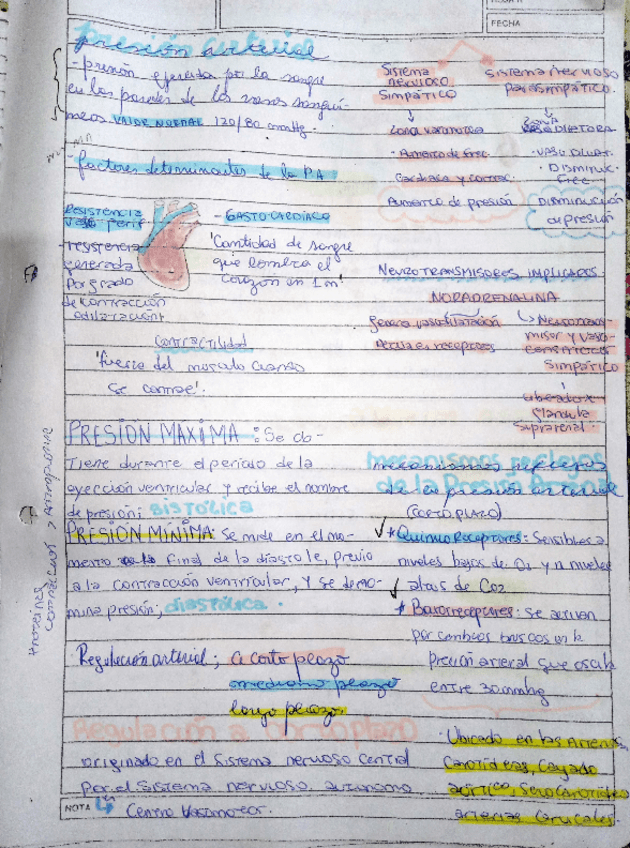 FECHA
presión arterial
- presión ejercida por la sangre
en las paredes de los vasos sanguí-
neos VALOR NORMAL 120/80 mmHg.
factores determinantes de la PA
Resistencia
perif
resistencia
generada
por grado
de contracción
- GASTO CARDÍACO
'Cantidad de sangre
que bombea el
corazón en 1 m'
Contractilidad
'fuerza del musculo cuando
se contrae'.
PRESIÓN MAXIMA : Se ob-
tiene durante el periodo de la
eyección ventricular y recibe el nombre
de presión: SISTÓLICA
PRESIÓN MÍNIMA: Se mide en el mo-
mento final de la diastole, previo
a la contracción ventricular, y se deno-
mina presión, diastólica.
Regulación arterial; a corto plazo
mediano plazo
largo plazo.
Regulación a corto plazo
originado en el Sistema nervioso Central
por el sistema nervioso autonomo
NOTA
Centro Vasomotor.
Sistema
nervioso
Simpático
Zona vasomotora
· Aumento de frec.
Cardiaca y contrac.
Aumento de presión
Sistema nervioso
parasimpático.
Zona
VASODILATORA
· VASO DILAT.
· DISMINUC.
frec
DISMINUCION
de presión
NEUROTRANSMISORES IMPLICADOS.
NORADRENALINA
Genera
receptores
misor y vaso-
constrictor
Simpático
glándula
suprarenal.
mecanismos reflejos
de la Presión Arterial
(CORTO PLAZO)
* Quimio Receptores: Sensibles a
niveles bajos de O2 y a niveles
altos de CO2
* Barorreceptores: Se activan
por cambios bruscos en la
presión arterial que oscila
entre 30mmhg
·Ubicado en las Arterias
Carotideas, Cayado
aórtico, Seno Carotideo
arterias